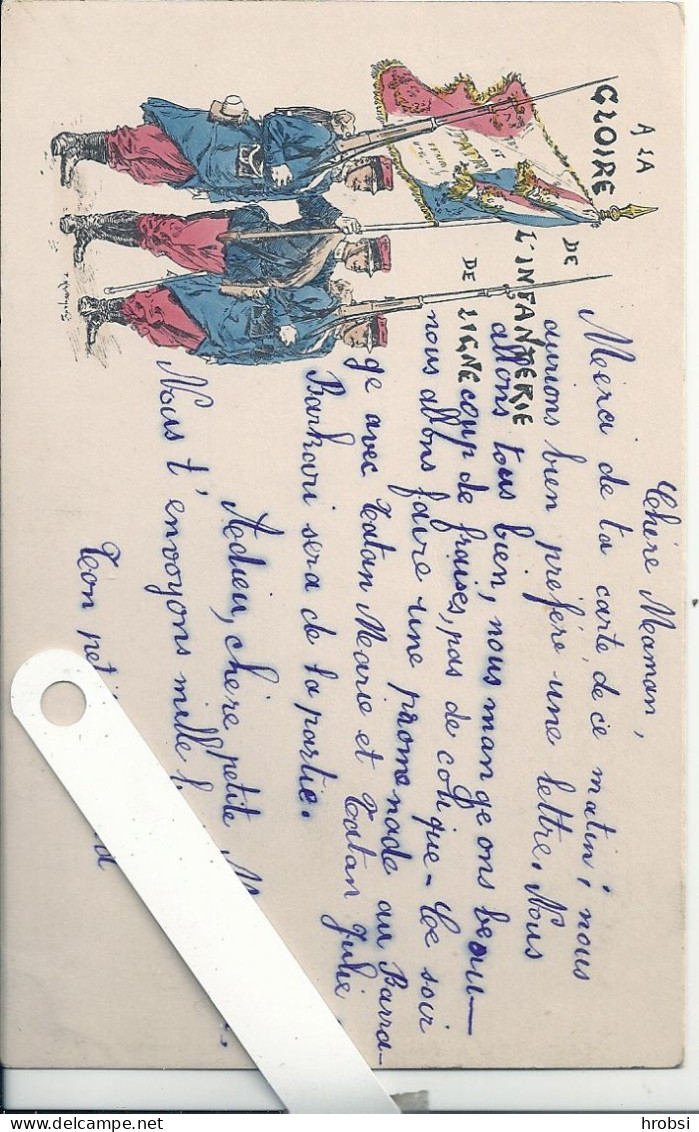 A LA
GLOIRE
DE
L'INFANTERIE
DE LIGNE
Chère Maman,
Merci de ta carte de ce matin; nous
aurions bien préféré une lettre. Nous
allons tous bien, nous mangeons beau-
coup de fraises, pas de colique - Ce soir
nous allons faire une promenade au Barra-
ge avec Tatan Marie et Tatan Julie
Barkari sera de la partie.
Adieu, chère petite
Nous t'envoyons mille
Ton
hrobsi